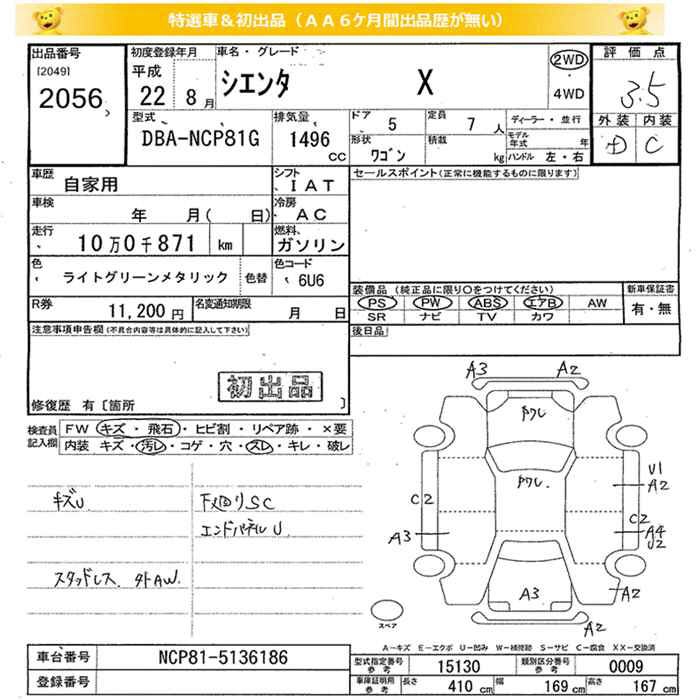 特選車＆初出品（ＡＡ６ケ月間出品歴が無い）
出品番号
[2049]
2056
初度登録年月
平成
22年 8月
車名・グレード
シエンタ X
2WD
・
4WD
評価点
3.5
外装 内装
D C
型式
DBA-NCP81G
排気量
1496
CC
ドア
5
定員
7人
形状
ワゴン
積載
kg
ディーラー・並行
モデル年式 年
ハンドル 左・右
車歴
自家用
シフト
IAT
車検
年 月( 日)
冷房
AC
走行
10万0千871 km
燃料
ガソリン
色
ライトグリーンメタリック
色替
色コード
6U6
R券
11,200円
名変通知期限
月 日
セールスポイント(正常に機能するものに限ります)
装備品(純正品に限り○をつけてください)
PS PW ABS エアB AW
SR ナビ TV カワ
新車保証書
有・無
後日品
注意事項申告欄(不具合内容等は具体的に記入して下さい)
初出品
修復歴 有〔箇所 〕
検査員記入欄
FW キズ・飛石・ヒビ割・リペア跡・×要
内装 キズ・汚レ・コゲ・穴・スレ・キレ・破レ
キズU
下回りSC
エンドパネルU
スタッドレス 外AW
A3 A2
タワレ
タワレ
U1
A2
C2
C2
A3
A4
U2
A3
A2
A2
スペア
A-キズ E-エクボ U-凹み W-補修跡 S-サビ C-腐食 XX-交換済
車台番号
NCP81-5136186
登録番号
型式指定番号
参考
15130
類別区分番号
参考
0009
車庫証明用
参考
長さ 410cm 幅 169cm 高さ 167cm